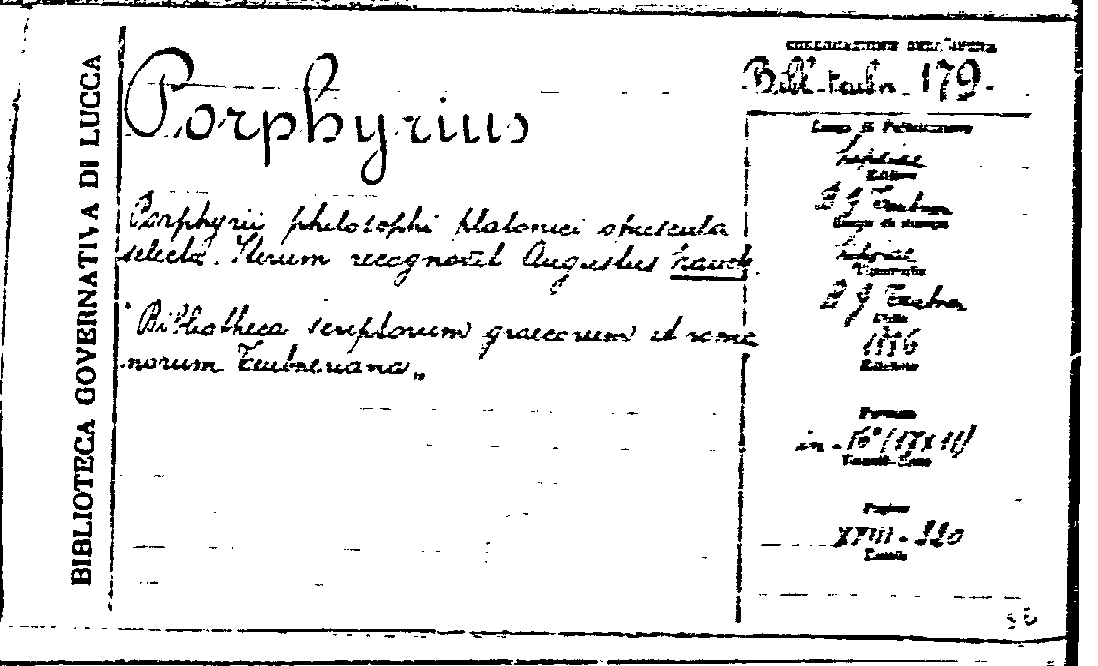 BIBLIOTECA GOVERNATIVA DI LUCCA
Porphyrius
Porphyrii philosophi platonici opuscula
selecta. Iterum recognovit Augustus Nauck.
"Bibliotheca scriptorum graecorum et roma
norum Teubneriana„
COLLOCAZIONE DELL'OPERA
Bibl. teubn. 179.
Luogo di Pubblicazione
Lipsiae
Editore
B G Teubner
Luogo di stampa
Lipsiae
Tipografia
B G Teubner
Data
1886
Edizione
Formato
in-16° (17x11)
Pagine
XVIII-320